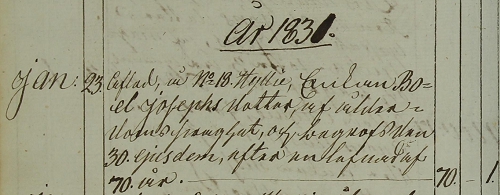 År 1831.
Jan: 23. Aflad, på No 18. Hyllie, Enkan Bo=
el Josephs dotter, af ålder=
doms svaghet, och begrofs den
30. ejusdem, efter en lefnad af
70. år. — 70. — 1.